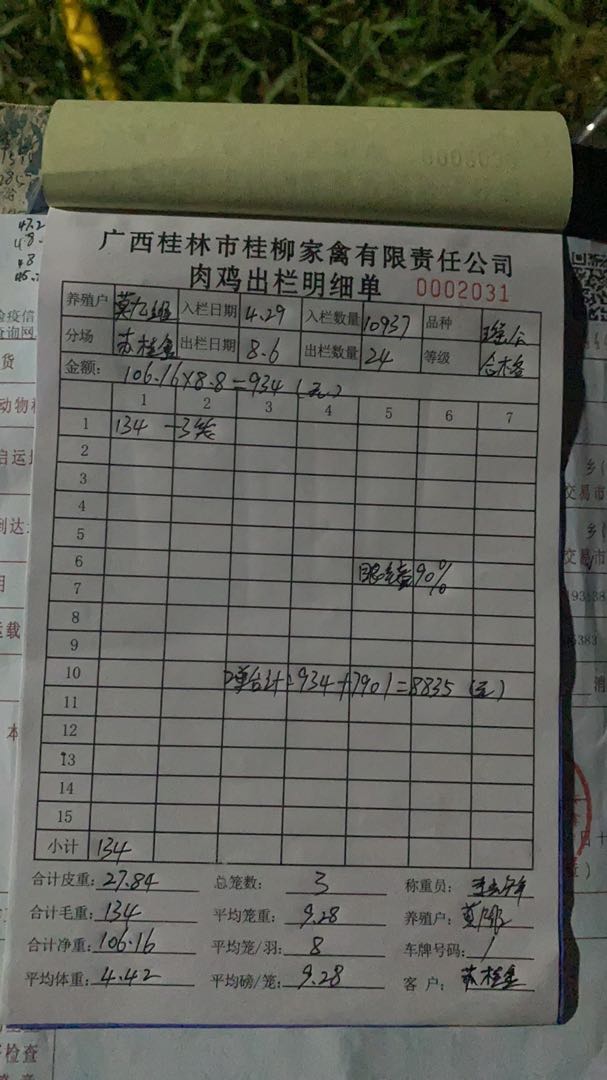 0002032
广西桂林市桂柳家禽有限责任公司
肉鸡出栏明细单 0002031
养殖户 入栏日期 4.29 入栏数量 10937 品种
分场 苏桂鑫 出栏日期 8.6 出栏数量 24 等级 合格
金额: 106.16×8.8=934(元)
1 2 3 4 5 6 7
1 134 - 3笼
2
3
4
5
6 90%
7
8
9
10 2单合计:934+7901=8835(元)
11
12
13
14
15
小计 134
合计皮重: 27.84 总笼数: 3 称重员:
合计毛重: 134 平均笼重: 9.28 养殖户:
合计净重: 106.16 平均笼/羽: 8 车牌号码: /
平均体重: 4.42 平均磅/笼: 9.28 客户: 苏桂鑫
47.2
货
动物
启运
到达:
运载
本
检查
乡(
交易市
乡(
交易市
消